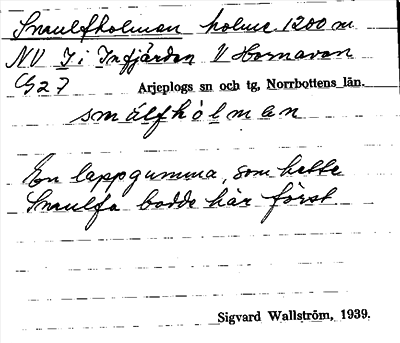 Smulfholmen holme. 1200 m
NV I i Infjärden V Hornavan
G27 Arjeplogs sn och tg, Norrbottens län.
smälfhòlman
En lappgumma, som hette
Smulfa bodde här först
Sigvard Wallström, 1939.